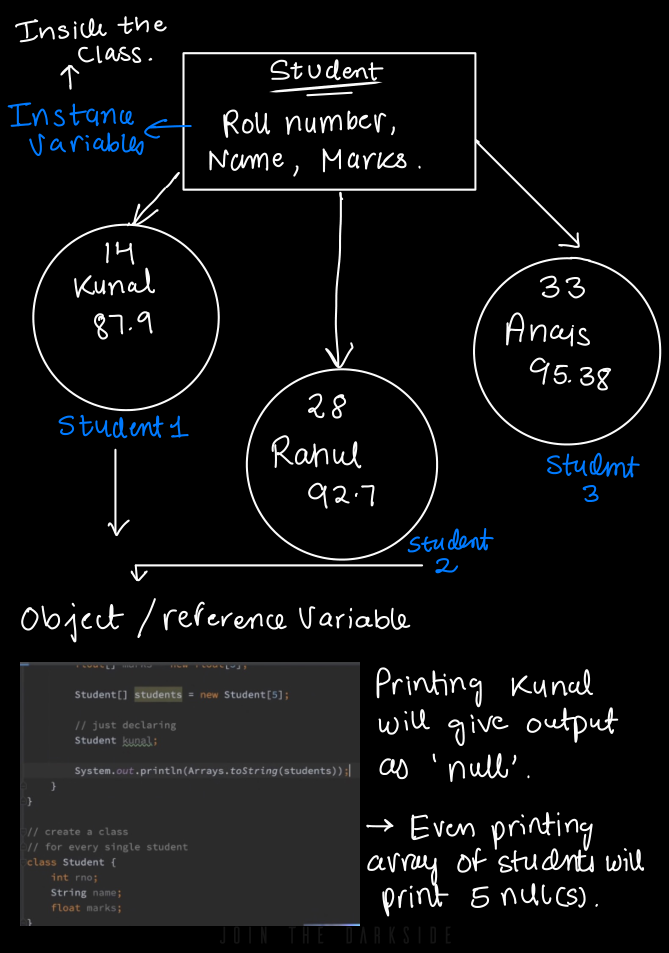 Inside the
Class.
Instance
Variables
Student
Roll number,
Name, Marks.
14
Kunal
87.9
Student 1
28
Rahul
92.7
Student
2
33
Anais
95.38
Studmt
3
Object / reference Variable
float[] marks = new float[5];
Student[] students = new Student[5];
// just declaring
Student kunal;
System.out.println(Arrays.toString(students));
}
}
// create a class
// for every single student
class Student {
int rno;
String name;
float marks;
}
Printing Kunal
will give output
as 'null'.
→ Even printing
array of students will
print 5 null(s).
JOIN THE DARKSIDE